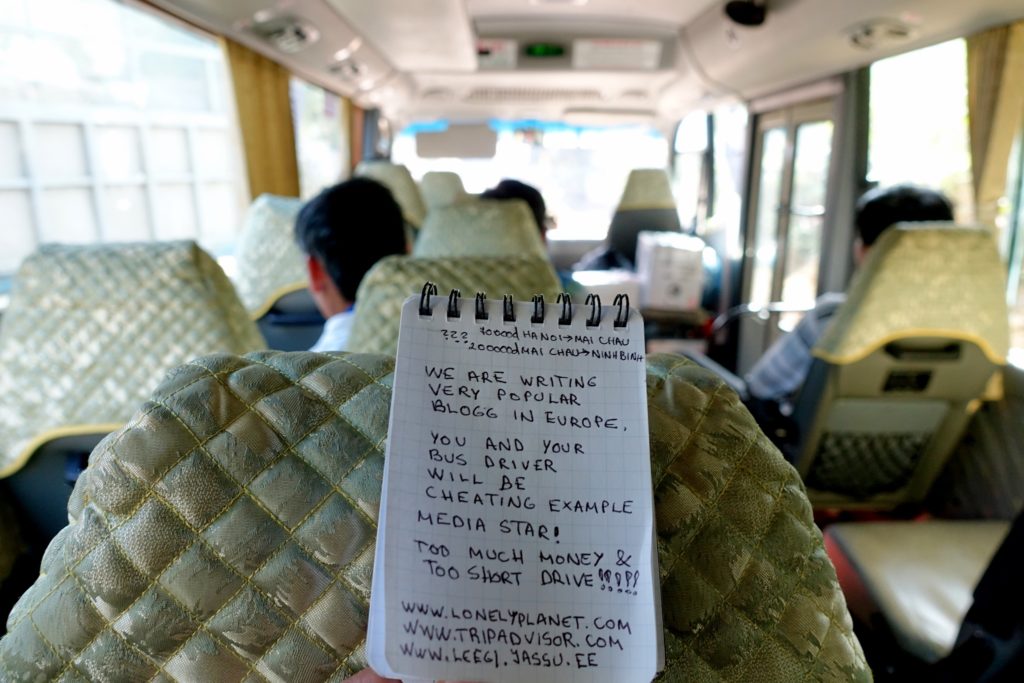 ??? 70000đ HANOI→MAI CHAU
200000đ MAI CHAU→NINH BINH
WE ARE WRITING
VERY POPULAR
BLOGG IN EUROPE,
YOU AND YOUR
BUS DRIVER
WILL BE
CHEATING EXAMPLE
MEDIA STAR!
TOO MUCH MONEY &
TOO SHORT DRIVE!!!!!
WWW.LONELYPLANET.COM
WWW.TRIPADVISOR.COM
WWW.LEEGI.JASSU.EE